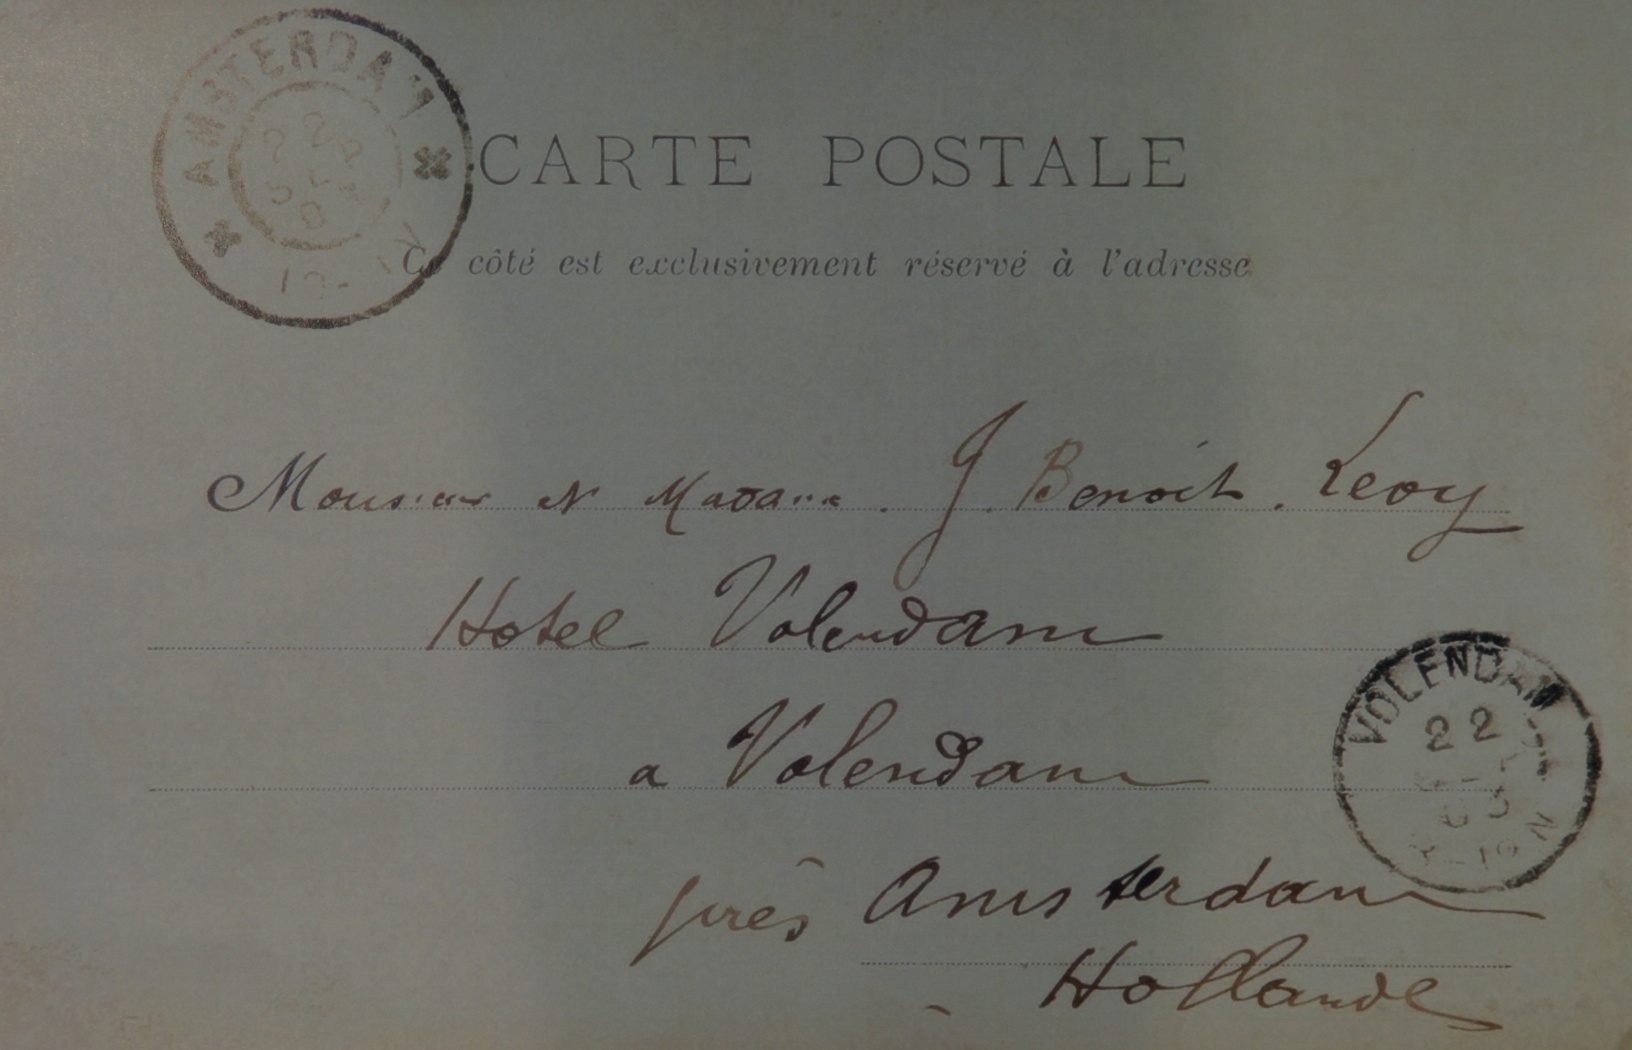 AMSTERDAM
CARTE POSTALE
Ce côté est exclusivement réservé à l'adresse
Monsieur et Madame. J. Benoit. Levy
Hotel Volendam
a Volendam
près Amsterdam
Hollande
VOLENDAM
22
03